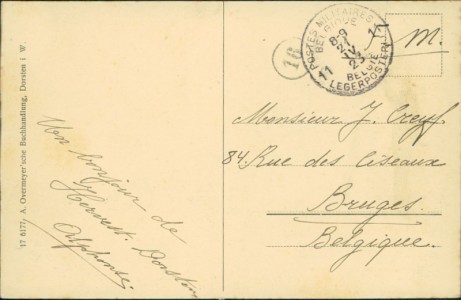 17 6177, A. Overmeyer'sche Buchhandlung, Dorsten i. W.
Un bonjour de
Hervest-Dorsten
Alphonse
16
POSTES MILITAIRES
BELGIQUE
8-9
IV
23
11
11
BELGIË
LEGERPOSTERIJ
m.
Monsieur J. Creyf.
84 Rue des Ciseaux
Bruges.
Belgique.